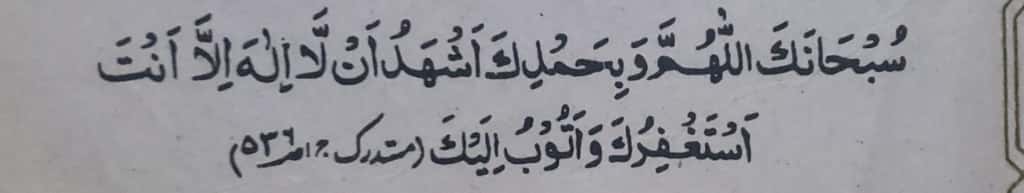 سُبْحَانَكَ اللّٰهُمَّ وَبِحَمْدِكَ اَشْهَدُ اَنْ لَّا اِلٰهَ اِلَّا اَنْتَ
اَسْتَغْفِرُكَ وَاَتُوْبُ اِلَيْكَ (مستدرک ج ۱ ص ۵۳۶)